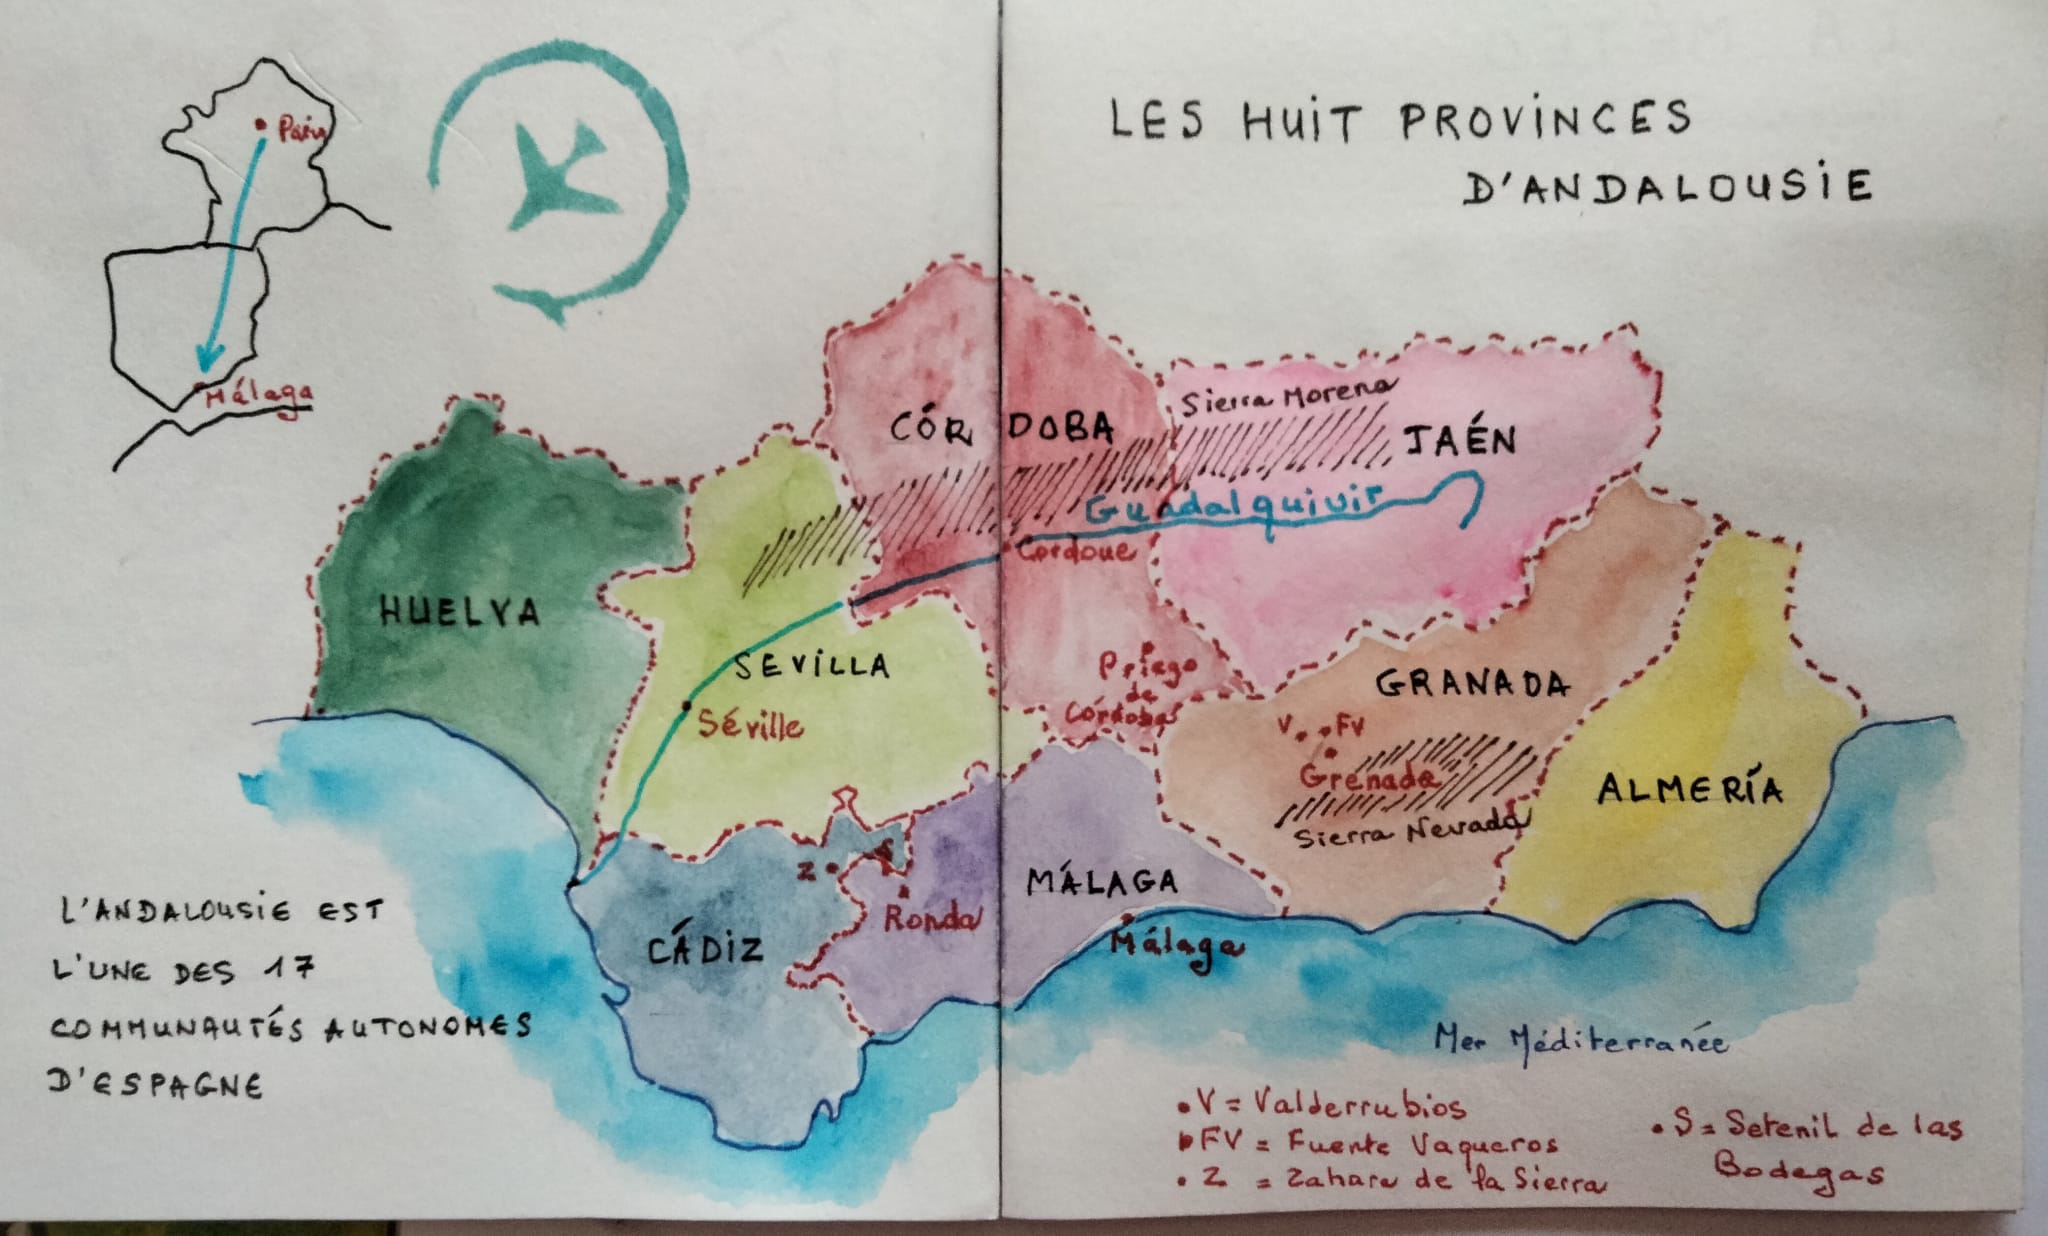 LES HUIT PROVINCES
D'ANDALOUSIE
Paris
Málaga
CÓRDOBA
Sierra Morena
JAÉN
Guadalquivir
Cordoue
HUELVA
SEVILLA
Séville
Priego
de
Córdoba
GRANADA
V FV
Grenade
Sierra Nevada
ALMERÍA
Z S
Ronda
MÁLAGA
Málaga
CÁDIZ
L'ANDALOUSIE EST
L'UNE DES 17
COMMUNAUTÉS AUTONOMES
D'ESPAGNE
Mer Méditerranée
• V = Valderrubios
• FV = Fuente Vaqueros
• Z = Zahara de la Sierra
• S = Setenil de las
Bodegas